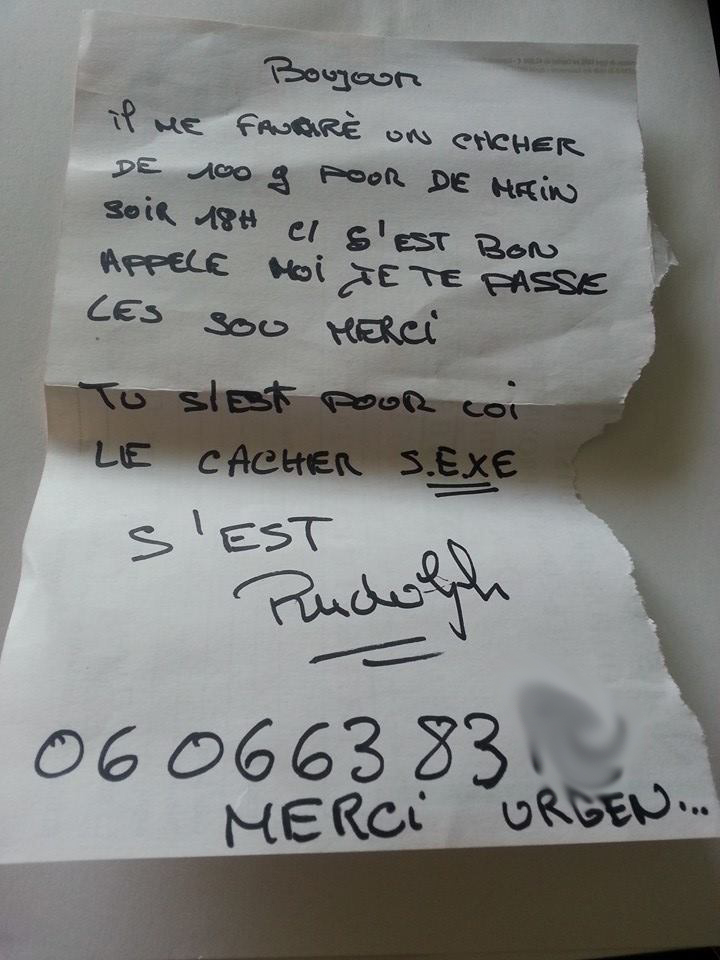 Boujour
il ME FAUDRÈ UN CACHER
DE 100 g POUR DE MAIN
SOIR 18H CI S'EST BON
APPELE MOI JE TE PASSE
LES SOU MERCI
TU S'EST POUR COI
LE CACHER S.EXE
S'EST
Rudolph
06 0663 83
MERCi URGEN...